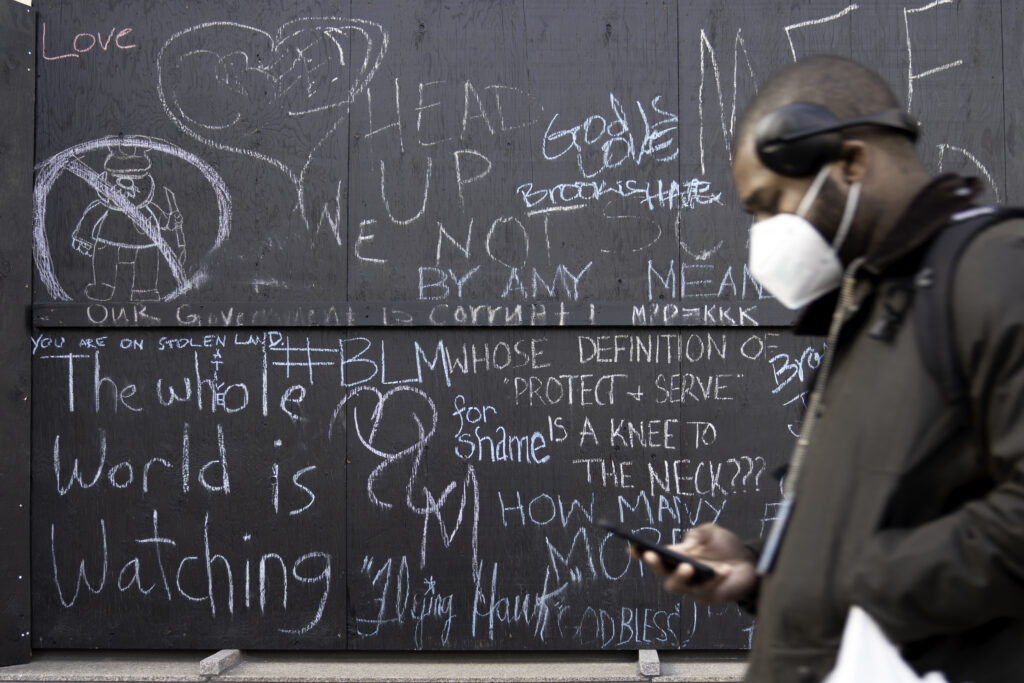 Love
HEAD
UP
God's
Love
Brookshate
WE NOT
BY AMY MEAN
OUR Government is Corrupt! M.P.=KKK
YOU ARE ON STOLEN LAND.
#BLM
The whole
World is
Watching
WHOSE DEFINITION OF
"PROTECT + SERVE"
IS A KNEE TO
THE NECK???
for
shame
HOW MANY
MORE
"Flying Hawk"
"GOD BLESS"